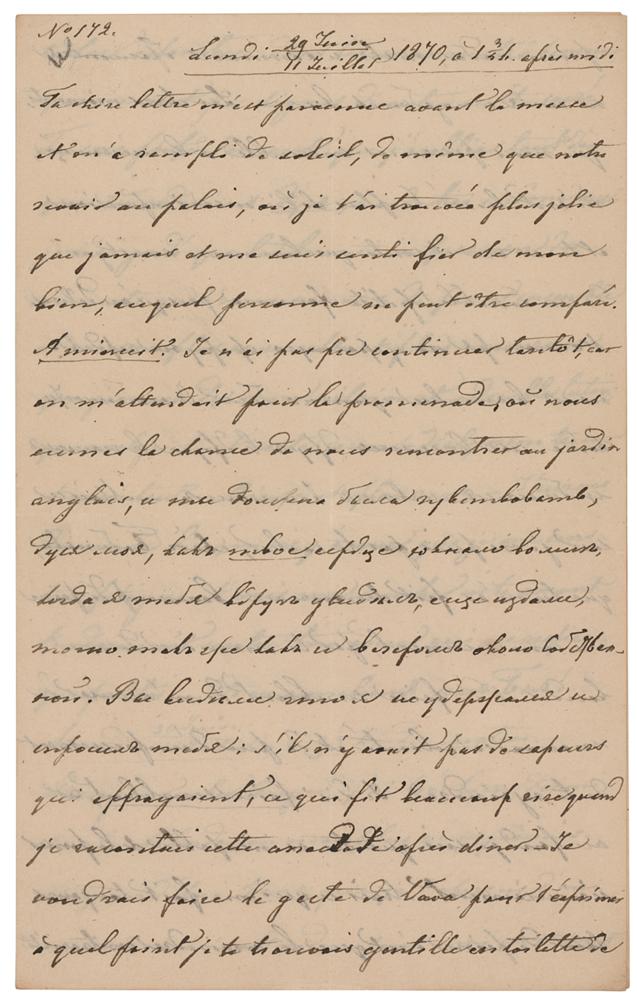 Nº 172.
Lundi 29 Juin / 11 Juillet 1870, à 1 3/4 h. après midi
Ta chère lettre m'est parvenue avant la messe
et m'a rempli de soleil, de même que notre
revoir au palais, où je t'ai trouvée plus jolie
que jamais et me suis senti fier de mon
bien, auquel personne ne peut être comparé.
A minuit. Je n'ai pas pu continuer tantôt, car
on m'attendait pour la promenade, où nous
eumes la chance de nous rencontrer au jardin
anglais, и ты должна была чувствовать,
душа моя, какъ твое сердце
когда я тебя вдругъ увидѣлъ, еще издали,
точно также какъ и вечеромъ около Собствен-
ной. Вы видѣли что я не удержался и
спросилъ тебя: s'il n'y avait pas de sapeurs
qui effrayaient, ce qui fit beaucoup rire quand
je racontais cette anecdote après diner. – Je
voudrais faire le geste de Vava pour t'exprimer
à quel point je te trouvais gentille en toilette de